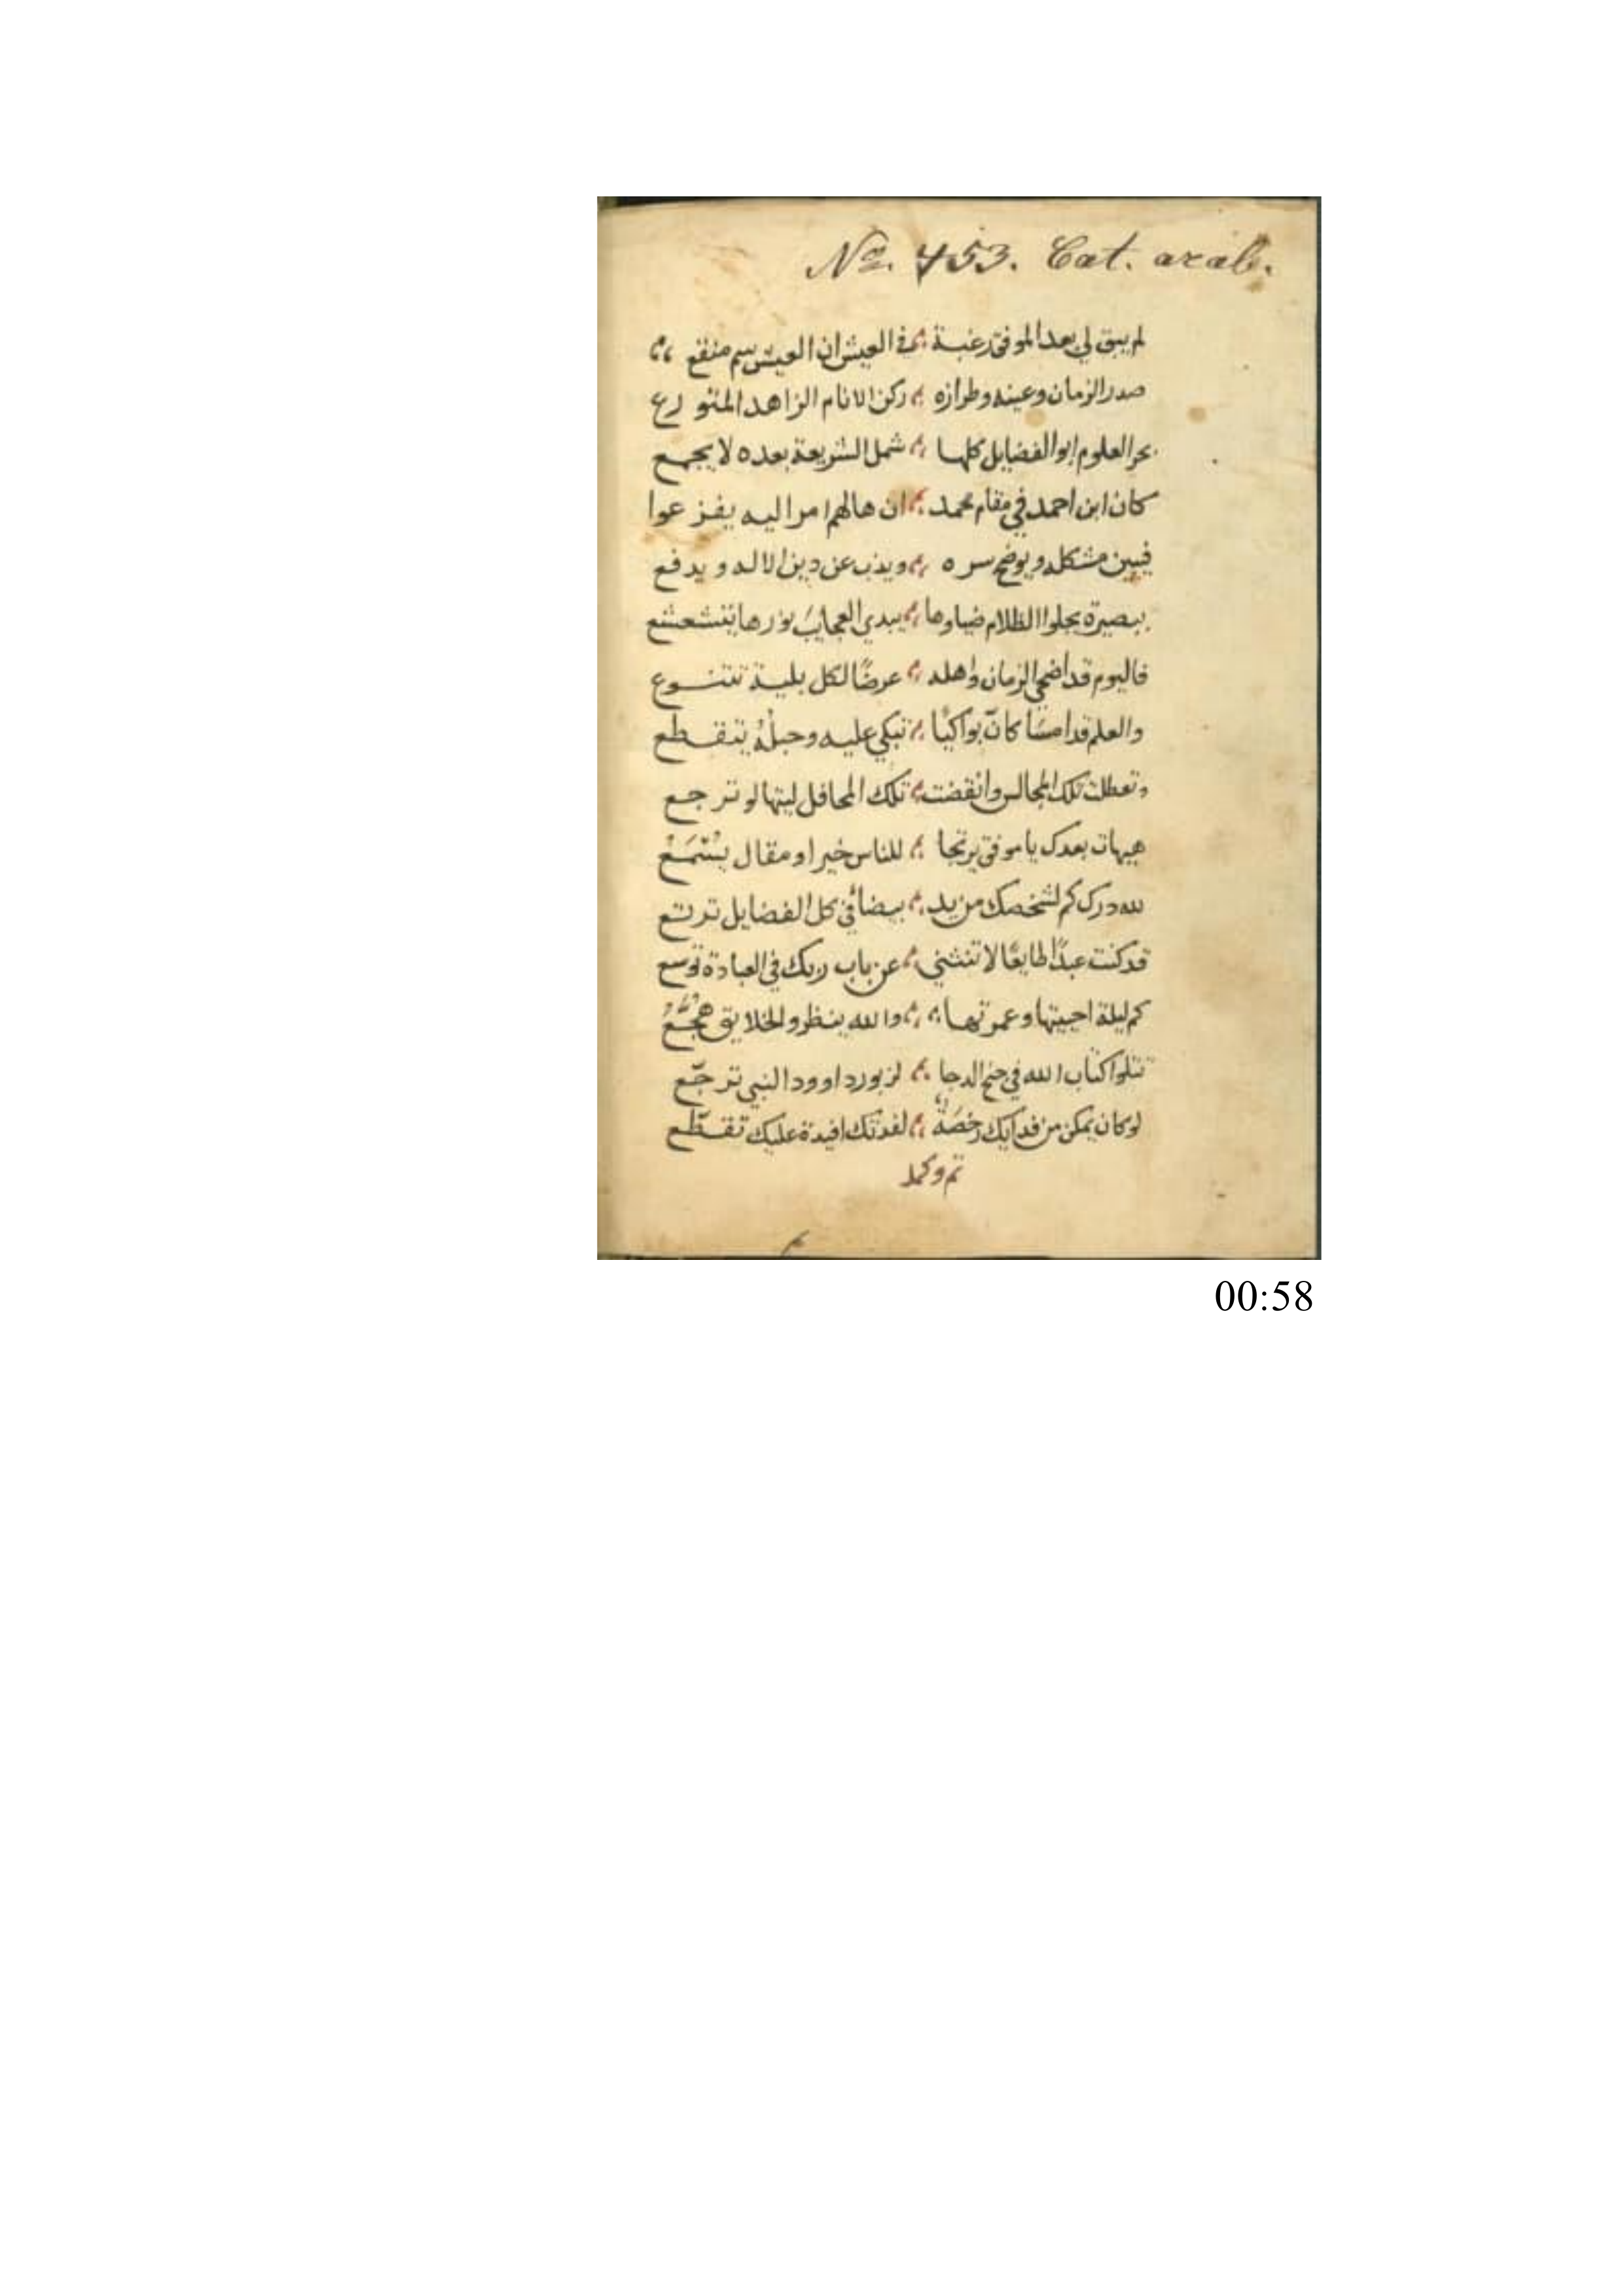 No. 453. Cat. arab.
لم يبق لي بعد الموفق رغبة في العيش ان العيش سم منقع
صدر الزمان وعينه وطرازه ركن الانام الزاهد المتورع
بحر العلوم ابو الفضايل كلها شمل الشريعة بعده لا يجمع
كان ابن احمد في مقام محمد ان هالهم امر اليه يفزعوا
فيبين مشكله ويوضح سره ويذب عن دين الاله ويدفع
ببصيرة يجلوا الظلام ضياوها يبدي العجايب نورها يتشعشع
فاليوم قد اضحى الزمان واهله عرضًا لكل بلية تتنوع
والعلم قد امسا كانّ بواكيًا تبكي عليه وحبلهُ يتقطع
وتعطلت تلك المجالس وانقضت تلك المحافل ليتها لو ترجع
هيهات بعدك يا موفق يرتجا للناس خير او مقال يسْتمَعْ
لله درك كم لشخصك من يد بيضأ في كل الفضايل ترتع
قد كنت عبدًا طايعًا لا تنثني عن باب ربك في العبادة توسع
كم ليلة احييتها وعمرتها والله ينظر والخلايق هُجَّعُ
تتلوا كتاب الله في جنح الدجا لزبور داوود النبي ترجّع
لو كان يمكن من فدايك رخصَةً لفدتك افيدة عليك تقطّع
تم وكمل
00:58